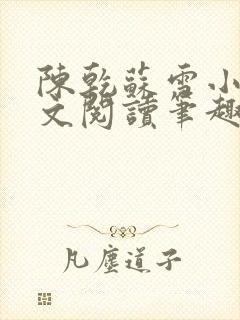 陳乾蘇雪小
文閱讀筆趣
凡塵道子